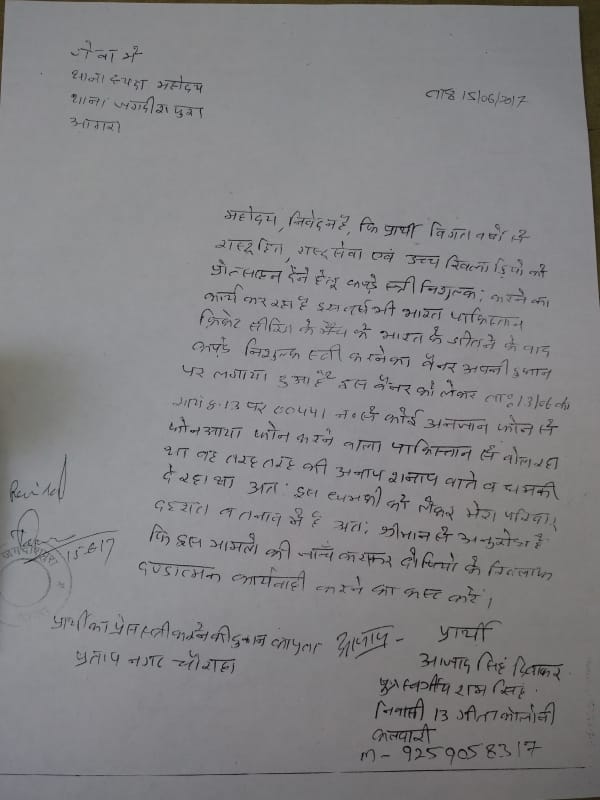 सेवा में
थानाध्यक्ष महोदय
थाना जगदीशपुरा
आगरा
ता० 15/06/2017
महोदय, निवेदन है, कि प्रार्थी विगत वर्षो से
राष्ट्रहित, राष्ट्रसेवा एवं उच्च खिलाडियो को
प्रोत्साहन देने हेतू कपड़े स्त्री निशुल्क; करने का
कार्य कर रहा है इस वर्ष भी भारत पाकिस्तान
क्रिकेट सीरिज के मैच के भारत के जीतने के बाद
कपड़े निशुल्क स्त्री करने का बैनर अपनी दुकान
पर लगाया हुआ है इस बैनर को लेकर ता० 13/06 को
8.13 पर 00441 न० से कोई अनजान फोन से
फोन आया फोन करने वाला पाकिस्तान से बोल रहा
था वह तरह तरह की अनाप शनाप बाते व धमकी
दे रहा था अतः इस धमकी को लेकर मेरा परिवार
दहशत व तनाव में है अतः श्रीमान से अनुरोध है
कि इस मामले की जाँच कराकर दोषियो के खिलाफ
दण्डात्मक कार्यवाही करने का कस्ट करें।
15.6.17
प्रार्थी का प्रेस स्त्री करने की दुकान का पता
प्रताप नगर चौराहा
प्रार्थी
आजाद सिंह दिवाकर
पुत्र स्वर्गीय राम सिंह
निवासी 13 गीता कोलोनी
कलवारी
m - 9259058317